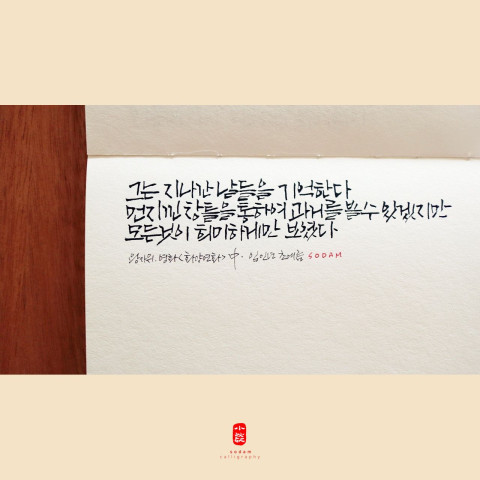 그는 지나간 날들을 기억한다
먼지낀 창틀을 통하여 과거를 볼수 있겠지만
모든것이 희미하게만 보였다
왕가위. 영화<화양연화> 中. 임인년 초여름 SODAM
sodam
calligraphy